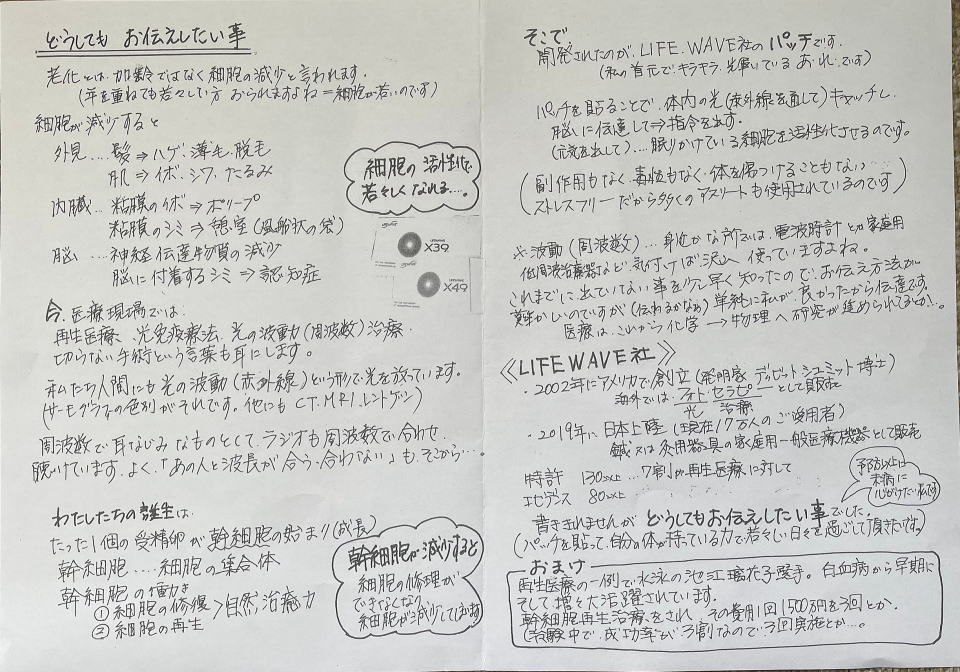 どうしても お伝えしたい事
老化とは、加齢ではなく細胞の減少と言われます。
(年を重ねても若々しい方 おられますよね=細胞が若いのです)
細胞が減少すると
外見....髪⇒ハゲ、薄毛、脱毛
肌⇒イボ、シワ、たるみ
内臓...粘膜のイボ⇒ポリープ
粘膜のシミ⇒憩室(風船状の袋)
脳....神経伝達物質の減少
脳に付着するシミ⇒認知症
細胞の活性化で
若々しくなれる...。
X39
X49
今、医療現場では、
再生医療、光免疫療法、光の波動(周波数)治療、
切らない手術という言葉も耳にします。
私たち人間にも光の波動(赤外線)という形で光を放っています。
(サーモグラフの色別がそれです。他にもCT.MRI.レントゲン)
周波数で耳なじみなものとして、ラジオも周波数で合わせ、
聴けています。よく、「あの人と波長が合う、合わない」も、そこから…。
わたしたちの誕生は、
たった1個の受精卵が幹細胞の始まり(成長)
幹細胞....細胞の集合体
幹細胞の働き
①細胞の修復
②細胞の再生
>自然治癒力
幹細胞が減少すると
細胞の修理が
できなくなり
細胞が減少してします
そこで、
開発されたのが、LIFE.WAVE社のパッチです。
(私の首元で、キラキラ光輝いているあれです)
パッチを貼ることで、体内の光(赤外線を通して)キャッチし、
脳に伝達して⇒指令を出す。
(元気を出して)...眠りかけている細胞を活性化させるのです。
(副作用もなく、毒性もなく、体を傷つけることもない
ストレスフリーだから多くのアスリートも使用されているのです)
※波動(周波数)...身近かな所では、電波時計とか家庭用
低周波治療器など、気付けば沢山使っていますよね。
これまでに出ていない事を少し早く知ったので、お伝え方法が
難かしいのですが(伝わるかなぁ)単純に私が、良かったから伝達です。
医療は、これから化学→物理へ研究が進められてるとか!。
《LIFE WAVE社》
・2002年にアメリカで創立(発明家 デイビット シュミット博士)
海外では、フォトセラピーとして販売
光 治療
・2019年に日本上陸(現在17万人のご愛用者)
鍼又は灸用器具の家庭用一般医療機器として販売
特許 130以上...7割が再生医療に対して
エビデンス 80以上
予防以上に
未病に
心がけたい私です
書ききれませんがどうしてもお伝えしたい事でした。
(パッチを貼って、自分の体が持っている力で若々しい日々を過ごして頂きたいです)
おまけ
再生医療の一例で水泳の池江璃花子選手。白血病から早期に
そして増々大活躍されています。
幹細胞再生治療をされ、その費用1回1500万を3回とか。
(治験中で、成功率が3割なので3回実施とか…。